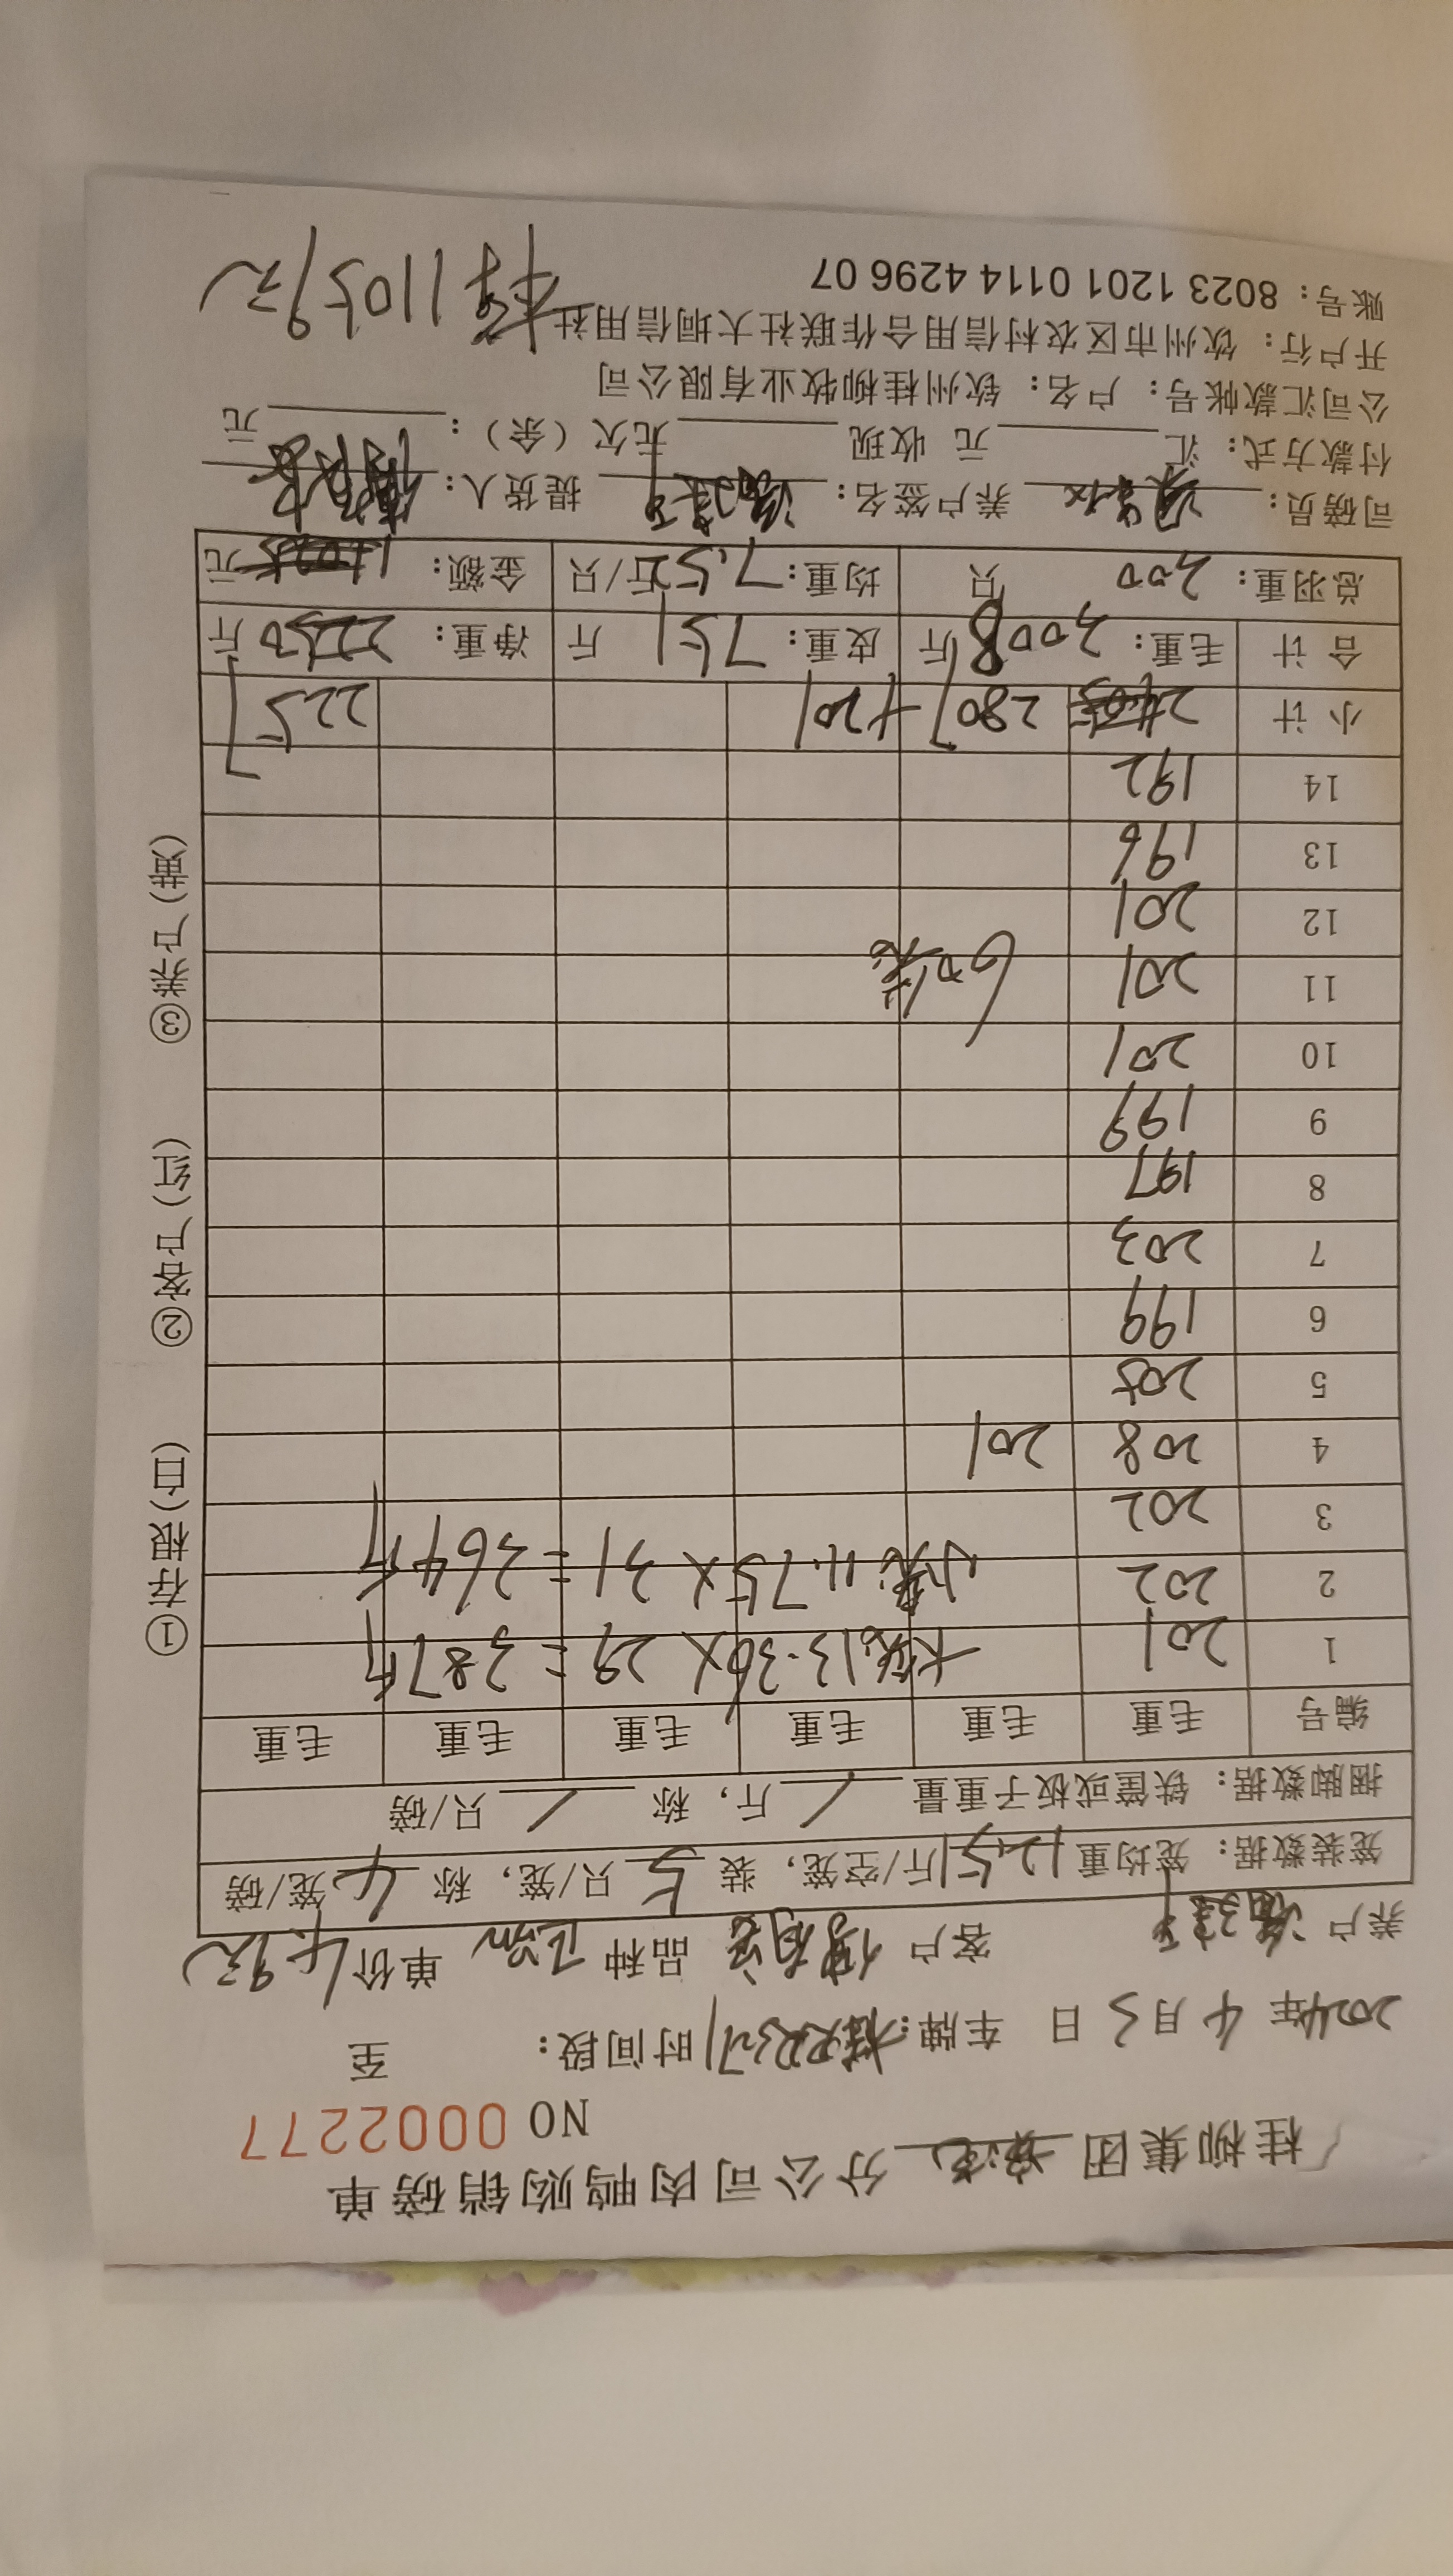 桂柳集团 分公司肉鸭购销磅单
NO 0002277
2024年 4月3日 车牌： 时间段： 至
养户 客户 品种 单价 4.9元
笼装数据：笼均重12.51斤/空笼，装 5 只/笼，称 4 笼/磅
捆脚数据：铁筐或板子重量 / 斤，称 / 只/磅
编号 毛重 毛重 毛重 毛重 毛重 毛重
1 201 大笼13.36X29=387斤
2 202 小笼11.75X31=364斤
3 202
4 208 201
5 205
6 199
7 203
8 197
9 199
10 201
11 201 60笼
12 201
13 196
14 192
小计 2807 +201 2257
合计 毛重：3008斤 皮重：751斤 净重： 斤
总羽重：300 只 均重：7.5斤/只 金额： 元
司磅员： 养户签名： 提货人：
付款方式：汇 元 收现 元欠（余）： 元
公司汇款帐号：户名：钦州桂柳牧业有限公司
开户行：钦州市区农村信用合作联社大垌信用社
账号：8023 1201 0114 4296 07
11059元
①存根（白） ②客户（红） ③养户（黄）